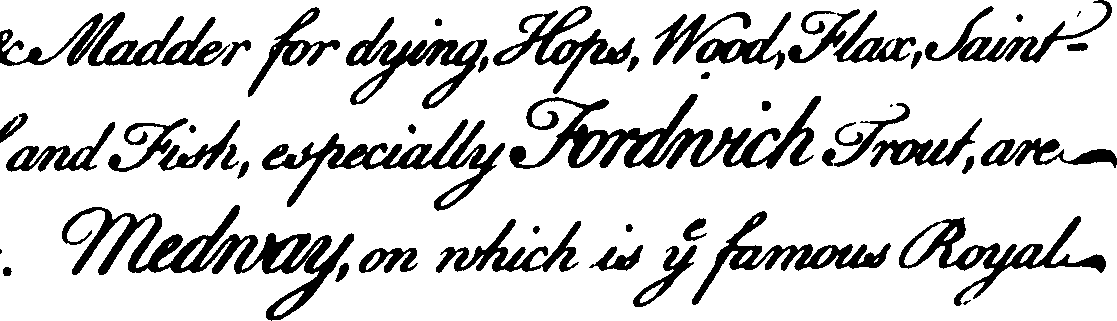 & Madder for dying, Hops, Wood, Flax, Saint-
and Fish, especially Fordwich Trout, are
Medway, on which is yᵉ famous Royal